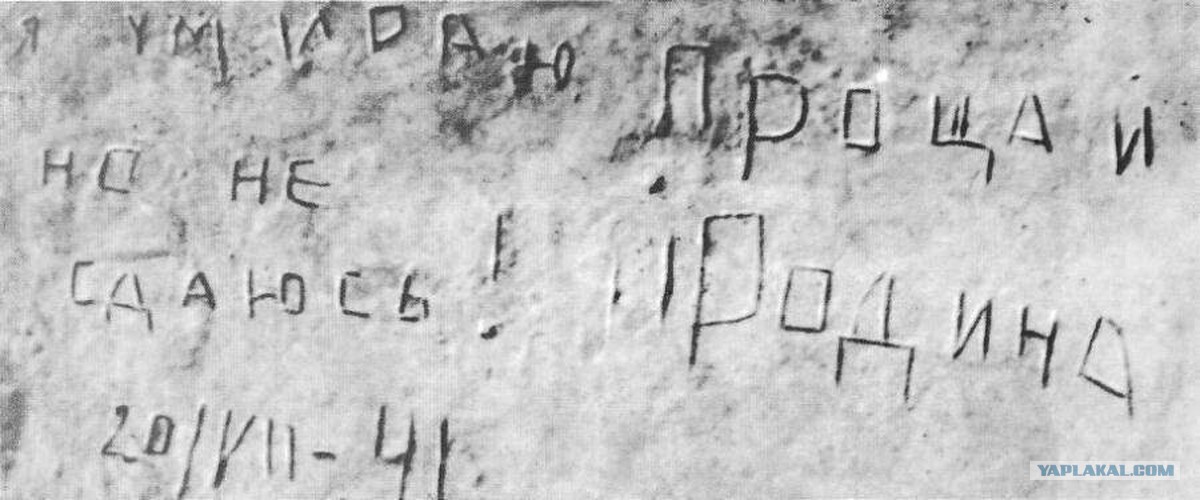 Я УМИРАЮ
НО НЕ
СДАЮСЬ!
ПРОЩАЙ
РОДИНА
20/VII-41
YAPLAKAL.COM